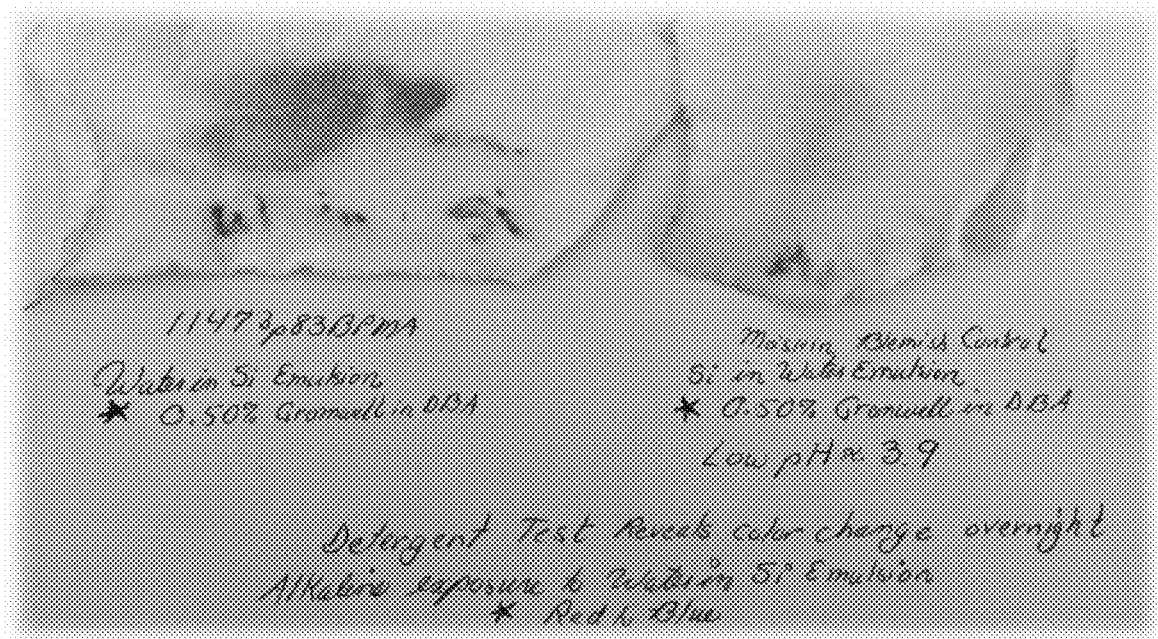 11473p83BPMA
Water in Si Emulsion
★ 0.50% Gromwell in DBA
Blemish Control
Si in Water Emulsion
★ 0.50% Gromwell in DBA
Low pH ≈ 3.9
Detergent Test Reveals color change overnight
Alkaline exposure to Water in Si Emulsion
★ Red to Blue